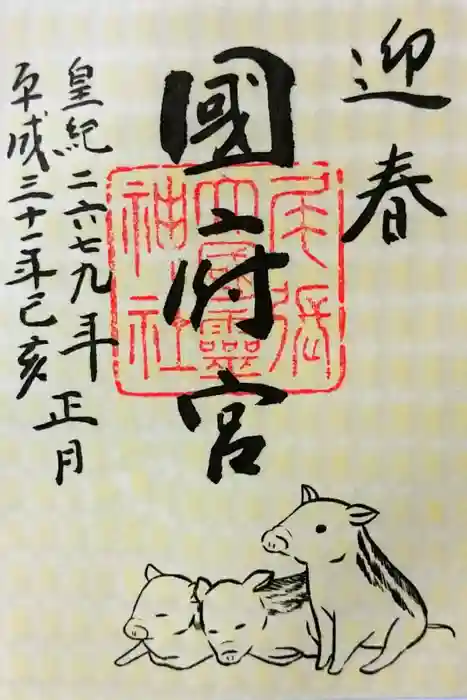 迎春
國府宮
尾張
大國霊
神社
皇紀二六七九年正月
平成三十一年己亥